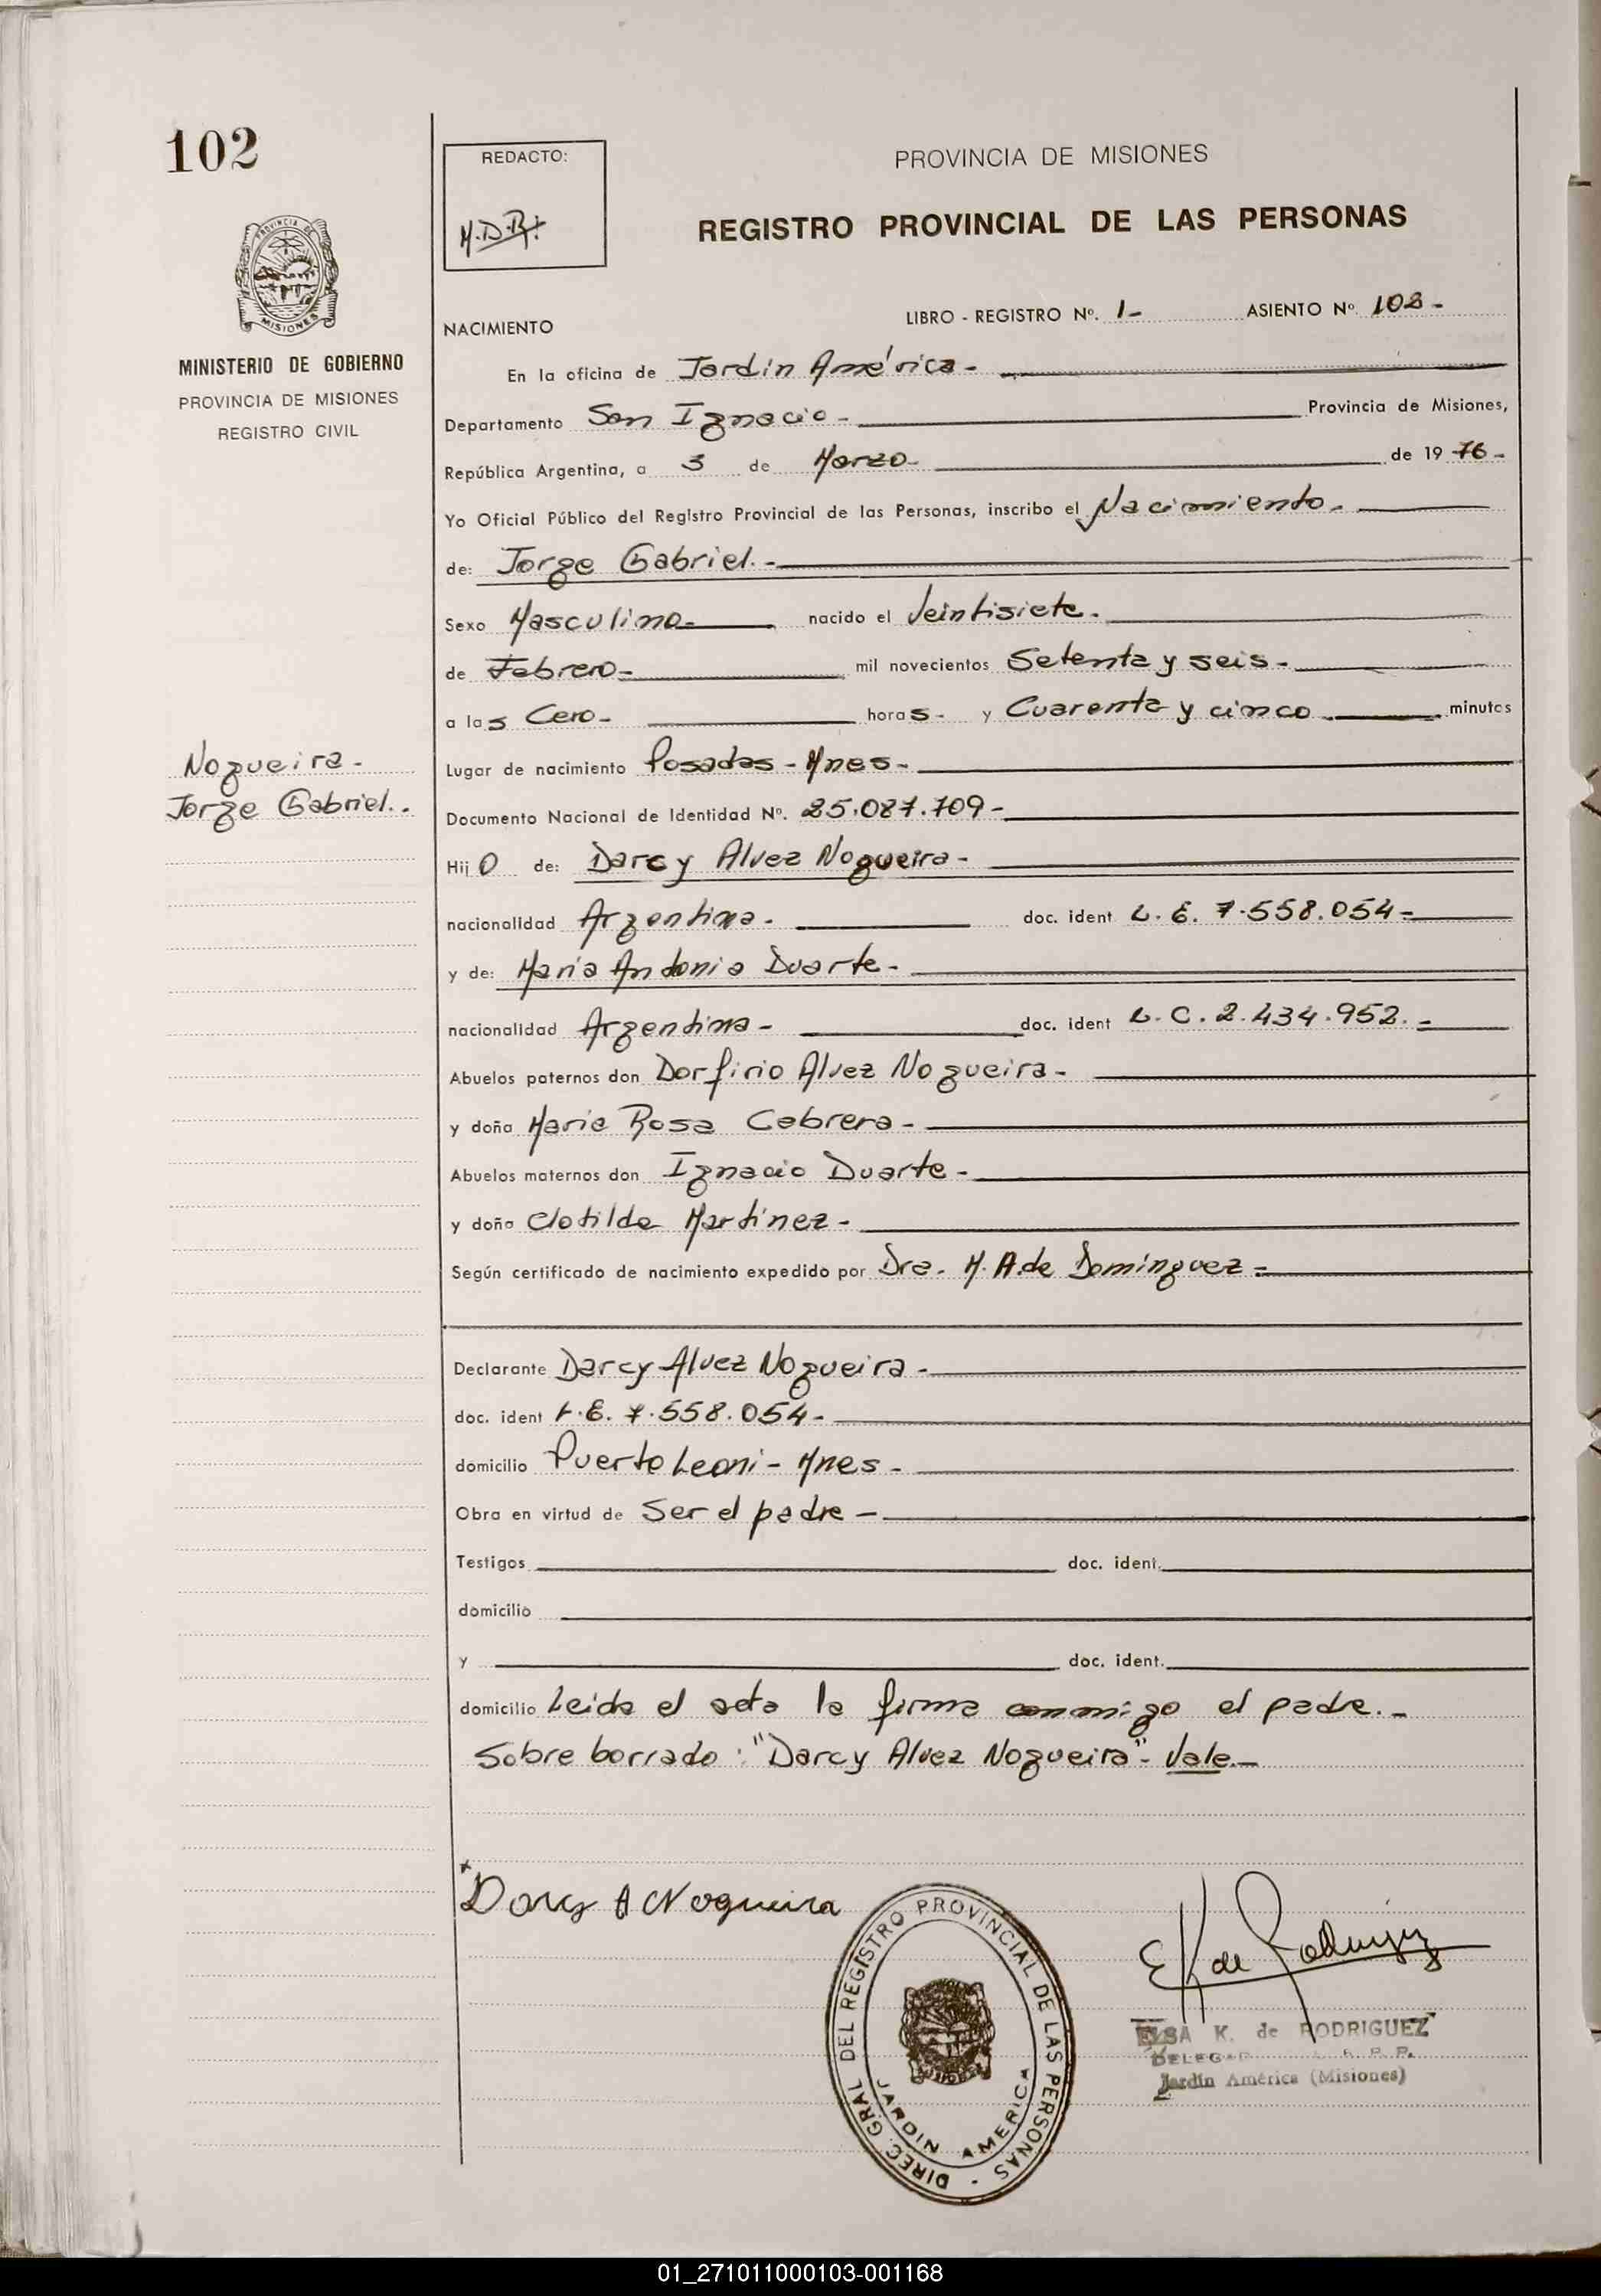 102
PROVINCIA DE
MISIONES
MINISTERIO DE GOBIERNO
PROVINCIA DE MISIONES
REGISTRO CIVIL
Nogueira -
Jorge Gabriel..
REDACTO:
PROVINCIA DE MISIONES
REGISTRO PROVINCIAL DE LAS PERSONAS
NACIMIENTO LIBRO - REGISTRO Nº. 1- ASIENTO Nº 102 -
En la oficina de Jardín América -
Departamento San Ignacio - Provincia de Misiones,
República Argentina, a 3 de Marzo - de 1976 -
Yo Oficial Público del Registro Provincial de las Personas, inscribo el Nacimiento.
de: Jorge Gabriel. -
Sexo Masculino - nacido el Veintisiete.
de Febrero - mil novecientos Setenta y seis -
a las Cero - horas - y Cuarenta y cinco minutos
Lugar de nacimiento Posadas - Mnes -
Documento Nacional de Identidad Nº. 25.087.709 -
Hijo de: Darcy Alvez Nogueira -
nacionalidad Argentina. doc. ident L. E. 7.558.054 -
y de: María Antonia Duarte -
nacionalidad Argentina - doc. ident L. C. 2.434.952. -
Abuelos paternos don Dorfirio Alvez Nogueira -
y doña María Rosa Cabrera -
Abuelos maternos don Ignacio Duarte -
y doña Clotilda Martínez -
Según certificado de nacimiento expedido por Dra. M. A. de Domínguez -
Declarante Darcy Alvez Nogueira -
doc. ident L. E. 7.558.054 -
domicilio Puerto Leoni - Mnes -
Obra en virtud de Ser el padre -
Testigos doc. ident.
domicilio
y doc. ident.
domicilio Leida el acta la firma conmigo el padre. -
Sobre borrado: "Darcy Alvez Nogueira" - Vale. -
Darcy A Nogueira
E K de Rodriguez
DIREC. GRAL DEL REGISTRO PROVINCIAL DE LAS PERSONAS -
JARDIN AMERICA
ELSA K. de RODRIGUEZ
R. P. P.
Jardín América (Misiones)
01_271011000103-001168